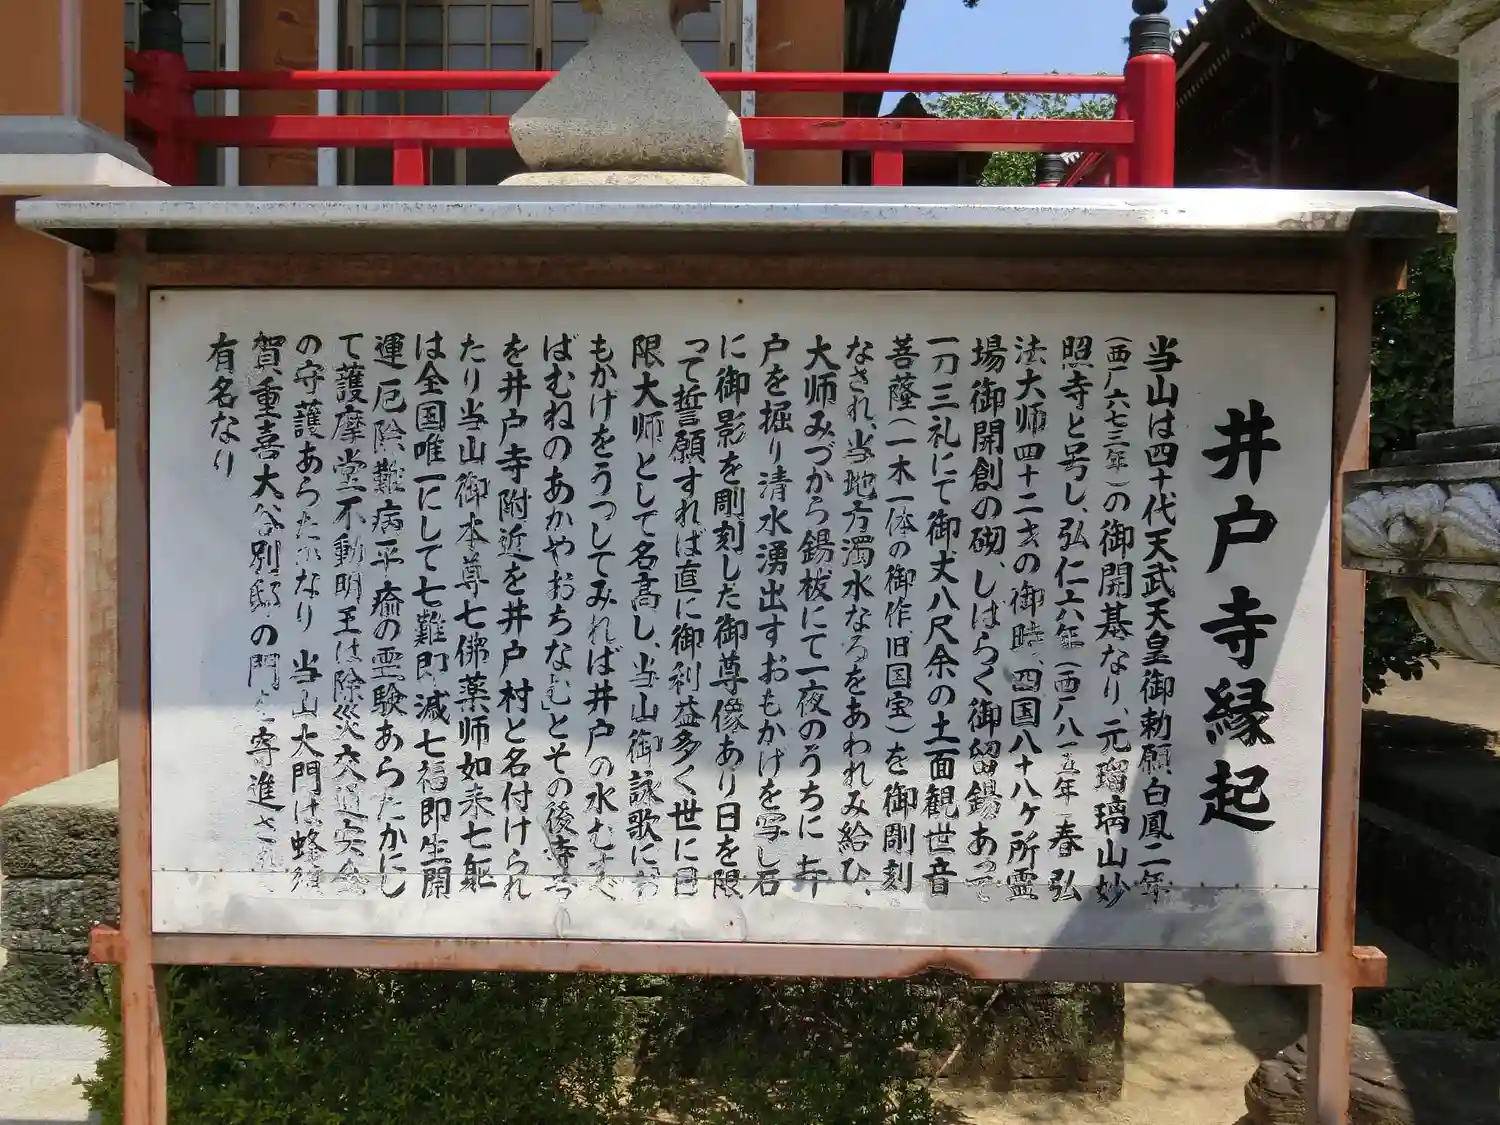 井戸寺縁起
当山は四十代天武天皇御勅願白鳳二年
（西六七三年）の御開基なり、元瑠璃山妙
照寺と号し、弘仁六年（西八一五年）春弘
法大师四十二才の御時、四国八十八ヶ所霊
場御開創の砌、しばらく御留錫あって
一刀三礼にて御丈八尺余の十一面観世音
菩薩（一木一体の御作旧国宝）を御彫刻
なされ、当地方濁水なるをあわれみ給ひ、
大师みづから錫杖にて一夜のうちに井
戸を掘り清水湧出すおもかげを写し石
に御影を彫刻した御尊像あり日を限
って誓願すれば直に御利益多く世に日
限大师として名高し、当山御詠歌にお
もかげをうつしてみれば井戸の水むすべ
ばむねのあかやおちなむ」とその後寺号
を井戸寺附近を井戸村と名付けられ
たり当山御本尊七佛薬师如来七躯
は全国唯一にして七難即滅七福即生開
運厄除難病平癒の霊験あらたかにし
て護摩堂不動明王は除災交通安全
の守護あらたかなり 当山大門は蜂須
賀重喜大谷別邸の門を寄進され
有名なり